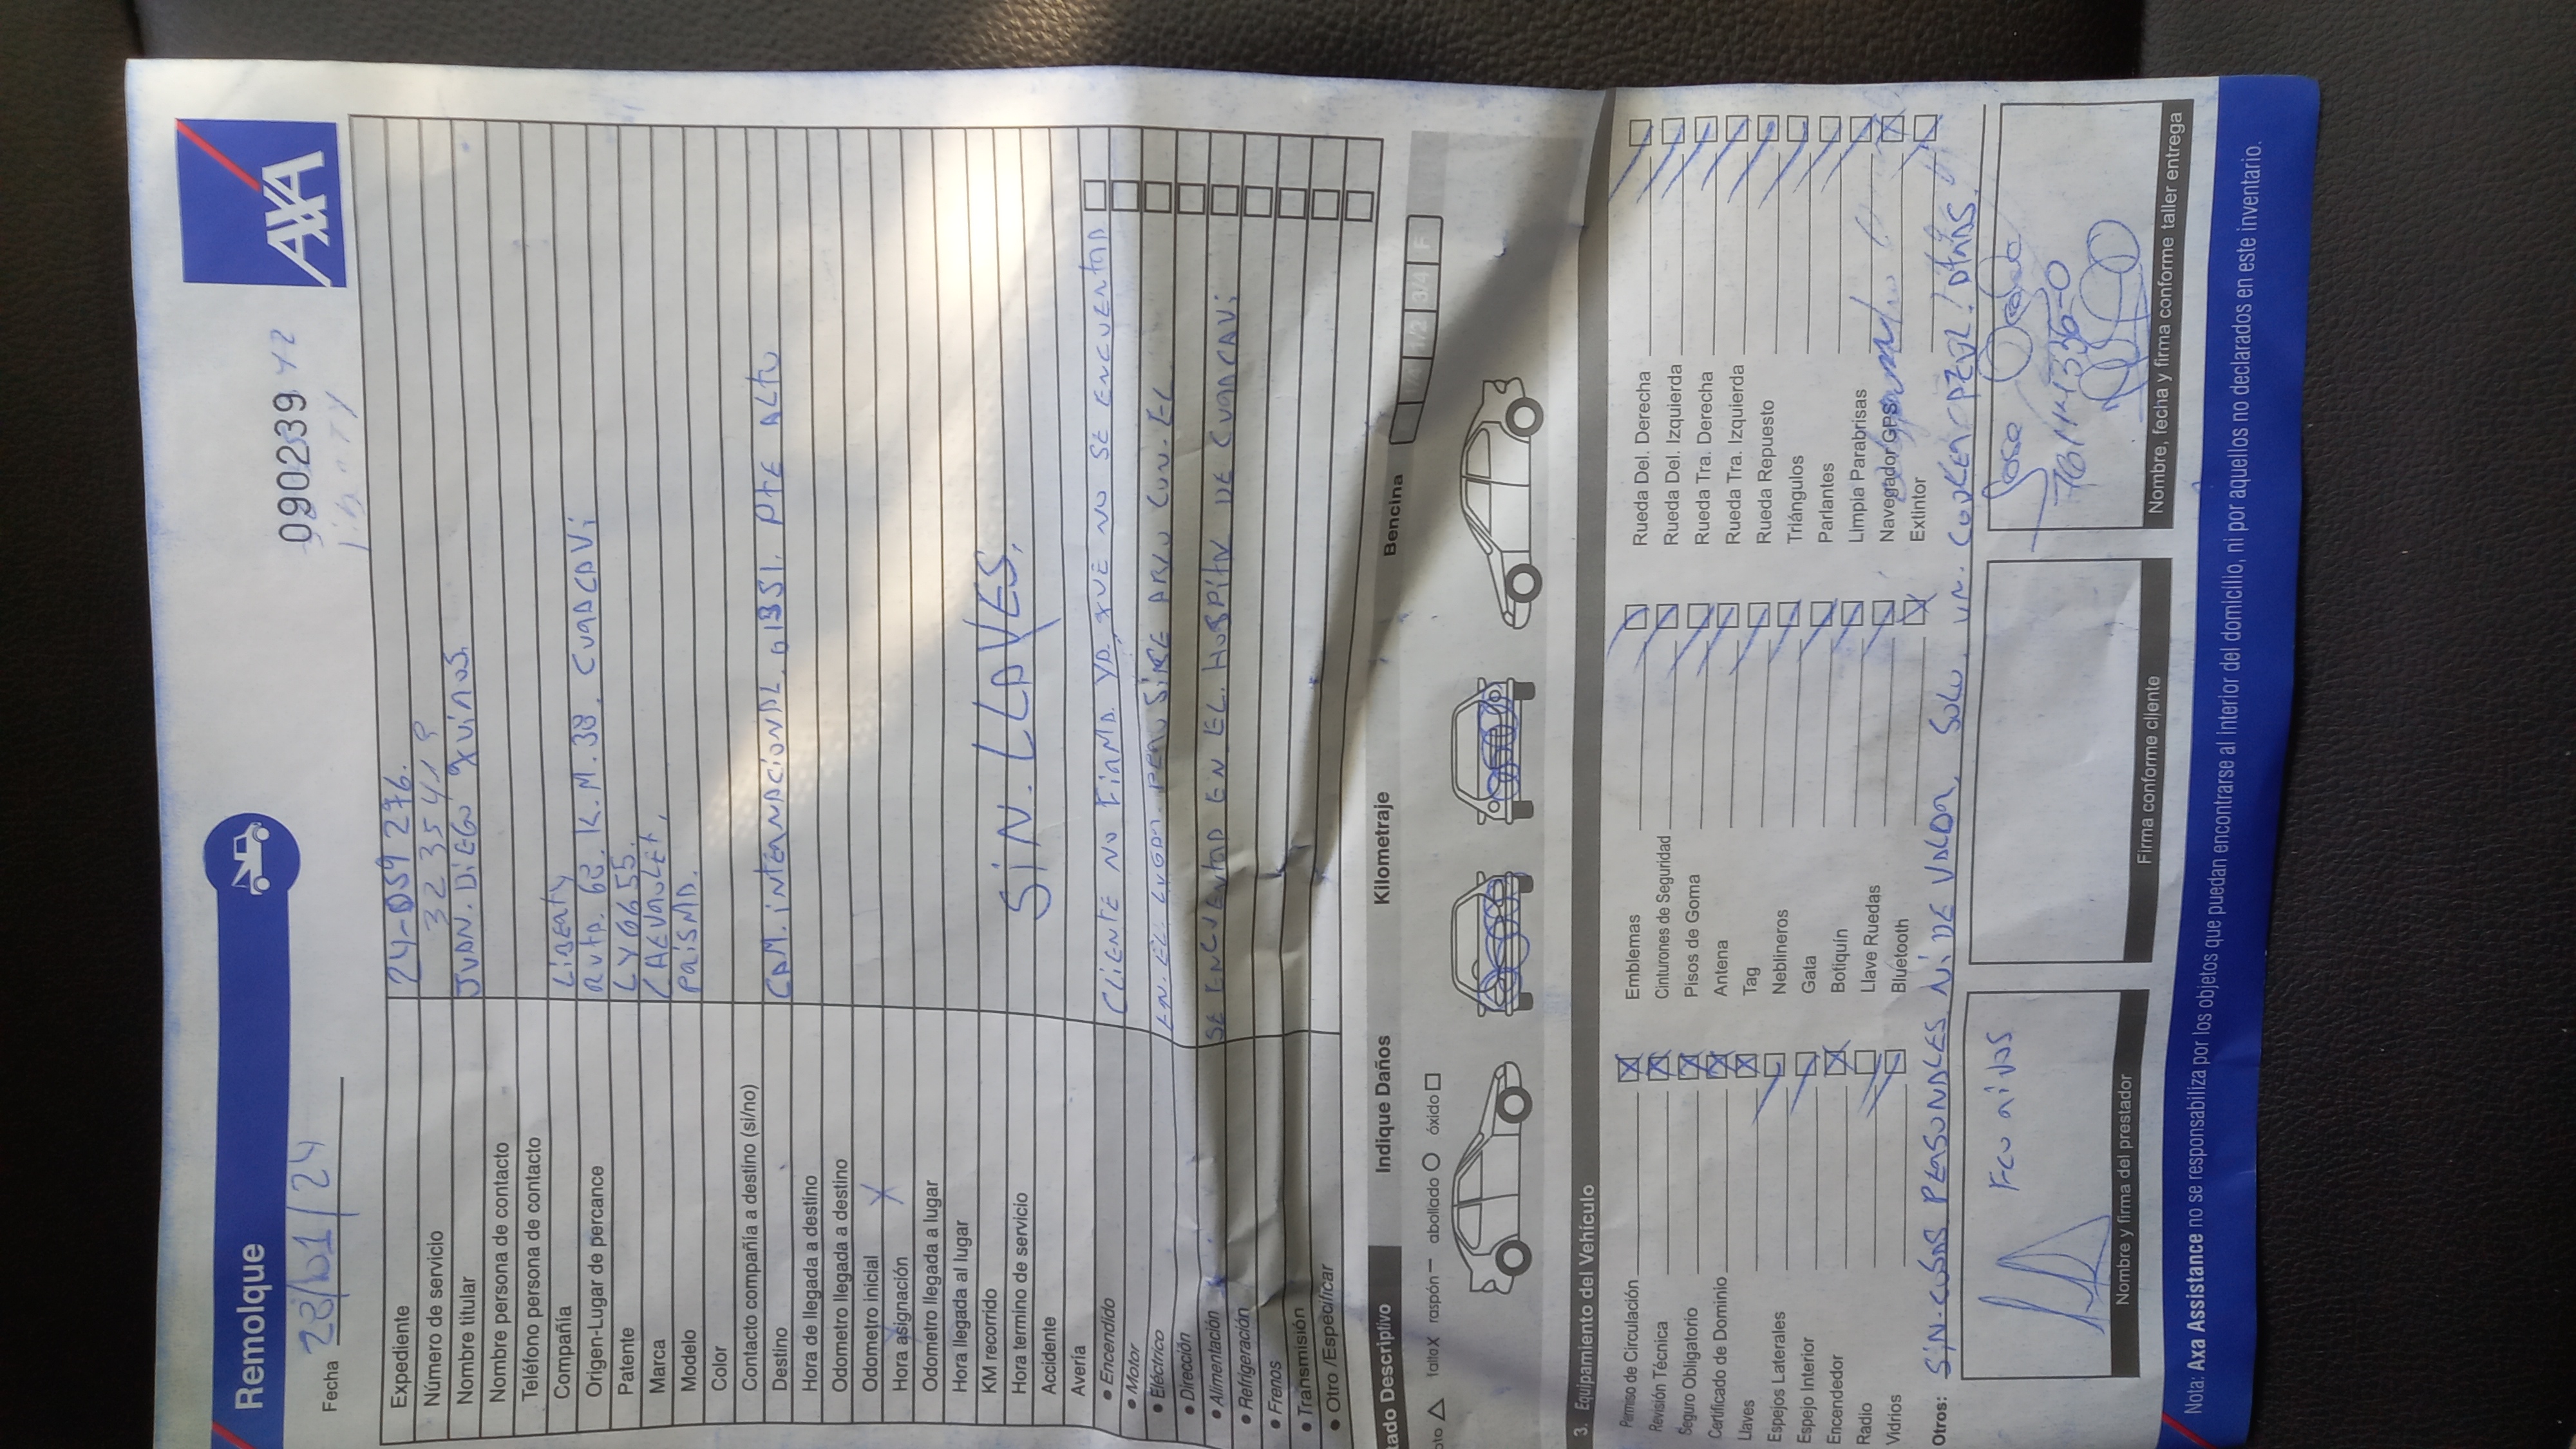 Remolque
AXA
090239 42
Fecha 28/01/24
Expediente 24-059 276.
Número de servicio 32 35 41 9
Nombre titular JUAN. DiEGO QUiÑOS.
Nombre persona de contacto
Teléfono persona de contacto
Compañía LiBERTY
Origen-Lugar de percance RUTA. 68. K.M. 38. CURACAVi
Patente LY GG 55.
Marca CHEVROLET,
Modelo PRiSMA.
Color
Contacto compañía a destino (si/no)
Destino CAM. iNTERNACiONAL. 0 PTE ALTO
Hora de llegada a destino
Odometro llegada a destino
Odometro inicial
Hora asignación
Odometro llegada a lugar
Hora llegada al lugar
KM recorrido
Hora termino de servicio SiN. LLAVES.
Accidente
Avería
• Encendido CLiENTE NO FiRMA. YA. QUE NO SE ENCUENTRA
• Motor
• Eléctrico EN. EL. LUGAR. PERO SiRE CON. EL
• Dirección
• Alimentación SE ENCUENTRA EN EL. HOSPiTAL DE CURACAVi
• Refrigeración
• Frenos
• Transmisión
• Otro /Especificar
tado Descriptivo Indique Daños Kilometraje Bencina
falta X raspón — abollado óxido
1/2 3/4 F
3. Equipamiento del Vehículo
Permiso de Circulación Emblemas Rueda Del. Derecha
Revisión Técnica Cinturones de Seguridad Rueda Del. Izquierda
Seguro Obligatorio Pisos de Goma Rueda Tra. Derecha
Certificado de Dominio Antena Rueda Tra. Izquierda
Llaves Tag Rueda Repuesto
Espejos Laterales Neblineros Triángulos
Espejo Interior Gata Parlantes
Encendedor Botiquín Limpia Parabrisas
Radio Llave Ruedas Navegador GPS
Vidrios Bluetooth Extintor
Otros: SiN. COSAS PERSONALES. Ni DE VALOR, SOLO. UN.
Jose
Nombre y firma del prestador Firma conforme cliente Nombre, fecha y firma conforme taller entrega
Nota: Axa Assistance no se responsabiliza por los objetos que puedan encontrarse al interior del domicilio, ni por aquellos no declarados en este inventario.